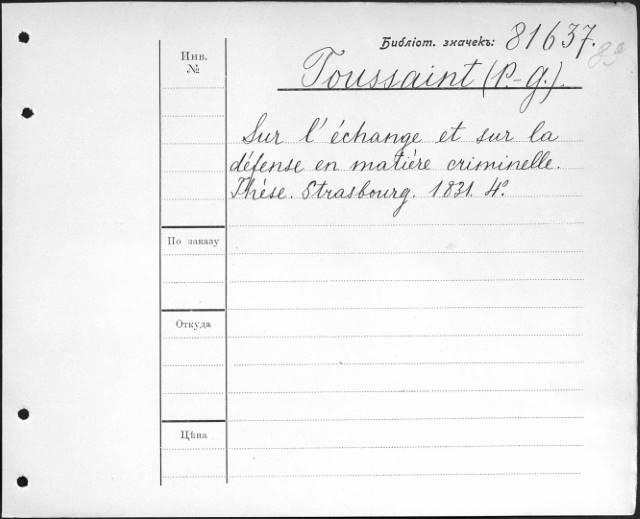 Библіот. значекъ: 81637.
89
Инв.
№
Toussaint (P.-G.).
Sur l'échange et sur la
défense en matière criminelle.
Thèse. Strasbourg. 1831. 4º
По заказу
Откуда
Цѣна